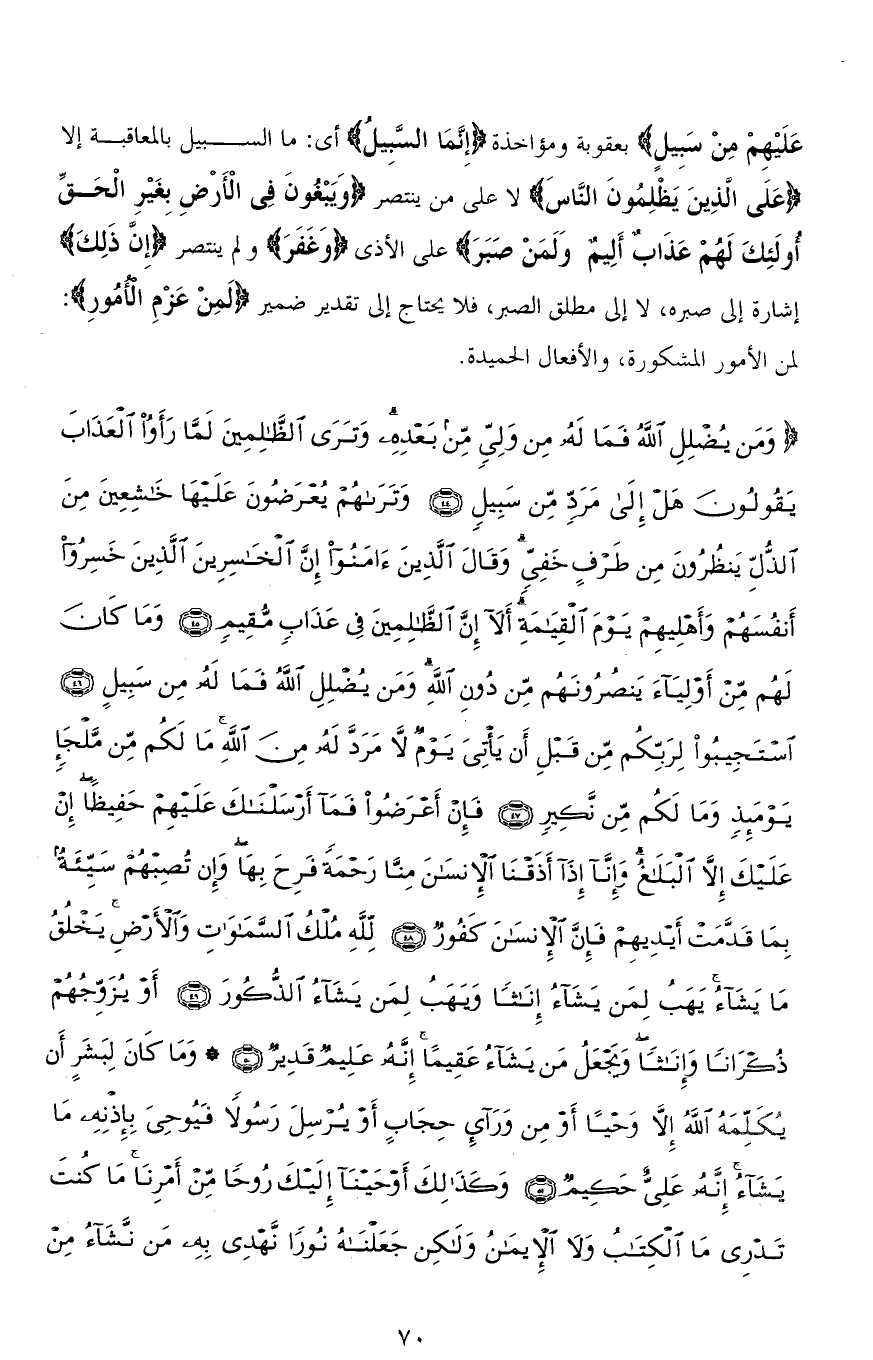 عَلَيْهِمْ مِنْ سَبِيلٍ﴾ بعقوبة ومؤاخذة ﴿إِنَّمَا السَّبِيلُ﴾ أى: ما الســــــبيل بالمعاقبــة إلا
﴿عَلَى الَّذِينَ يَظْلِمُونَ النَّاسَ﴾ لا على من ينتصر ﴿وَيَبْغُونَ فِى الْأَرْضِ بِغَيْرِ الْحَــقِّ
أُولَئِكَ لَهُمْ عَذَابٌ أَلِيمٌ وَلَمَنْ صَبَرَ﴾ على الأذى ﴿وَغَفَرَ﴾ و لم ينتصر ﴿إِنَّ ذَلِكَ﴾
إشارة إلى صبره، لا إلى مطلق الصبر، فلا يحتاج إلى تقدير ضمير ﴿لَمِنْ عَزْمِ الْأُمُورِ﴾:
لمن الأمور المشكورة، والأفعال الحميدة.
﴿ وَمَن يُضْلِلِ ٱللَّهُ فَمَا لَهُۥ مِن وَلِىٍّ مِّنۢ بَعْدِهِۦۗ وَتَرَى ٱلظَّـٰلِمِينَ لَمَّا رَأَوُاْ ٱلْعَذَابَ
يَقُولُونَ هَلْ إِلَىٰ مَرَدٍّ مِّن سَبِيلٍ ٤٤ وَتَرَىٰهُمْ يُعْرَضُونَ عَلَيْهَا خَـٰشِعِينَ مِنَ
ٱلذُّلِّ يَنظُرُونَ مِن طَرْفٍ خَفِىٍّۗ وَقَالَ ٱلَّذِينَ ءَامَنُوٓاْ إِنَّ ٱلْخَـٰسِرِينَ ٱلَّذِينَ خَسِرُوٓاْ
أَنفُسَهُمْ وَأَهْلِيهِمْ يَوْمَ ٱلْقِيَـٰمَةِۗ أَلَآ إِنَّ ٱلظَّـٰلِمِينَ فِى عَذَابٍ مُّقِيمٍ ٤٥ وَمَا كَانَ
لَهُم مِّنْ أَوْلِيَآءَ يَنصُرُونَهُم مِّن دُونِ ٱللَّهِۗ وَمَن يُضْلِلِ ٱللَّهُ فَمَا لَهُۥ مِن سَبِيلٍ ٤٦
ٱسْتَجِيبُواْ لِرَبِّكُم مِّن قَبْلِ أَن يَأْتِىَ يَوْمٌ لَّا مَرَدَّ لَهُۥ مِنَ ٱللَّهِۚ مَا لَكُم مِّن مَّلْجَإٍ
يَوْمَئِذٍ وَمَا لَكُم مِّن نَّكِيرٍ ٤٧ فَإِنْ أَعْرَضُواْ فَمَآ أَرْسَلْنَـٰكَ عَلَيْهِمْ حَفِيظًاۖ إِنْ
عَلَيْكَ إِلَّا ٱلْبَلَـٰغُۗ وَإِنَّآ إِذَآ أَذَقْنَا ٱلْإِنسَـٰنَ مِنَّا رَحْمَةً فَرِحَ بِهَاۖ وَإِن تُصِبْهُمْ سَيِّئَةٌۢ
بِمَا قَدَّمَتْ أَيْدِيهِمْ فَإِنَّ ٱلْإِنسَـٰنَ كَفُورٌ ٤٨ لِّلَّهِ مُلْكُ ٱلسَّمَـٰوَٰتِ وَٱلْأَرْضِۚ يَخْلُقُ
مَا يَشَآءُۚ يَهَبُ لِمَن يَشَآءُ إِنَـٰثًا وَيَهَبُ لِمَن يَشَآءُ ٱلذُّكُورَ ٤٩ أَوْ يُزَوِّجُهُمْ
ذُكْرَانًا وَإِنَـٰثًاۖ وَيَجْعَلُ مَن يَشَآءُ عَقِيمًاۚ إِنَّهُۥ عَلِيمٌ قَدِيرٌ ٥٠ * وَمَا كَانَ لِبَشَرٍ أَن
يُكَلِّمَهُ ٱللَّهُ إِلَّا وَحْيًا أَوْ مِن وَرَآئِ حِجَابٍ أَوْ يُرْسِلَ رَسُولًا فَيُوحِىَ بِإِذْنِهِۦ مَا
يَشَآءُۚ إِنَّهُۥ عَلِىٌّ حَكِيمٌ ٥١ وَكَذَٰلِكَ أَوْحَيْنَآ إِلَيْكَ رُوحًا مِّنْ أَمْرِنَاۚ مَا كُنتَ
تَدْرِى مَا ٱلْكِتَـٰبُ وَلَا ٱلْإِيمَـٰنُ وَلَـٰكِن جَعَلْنَـٰهُ نُورًا نَّهْدِى بِهِۦ مَن نَّشَآءُ مِنْ
٧٠